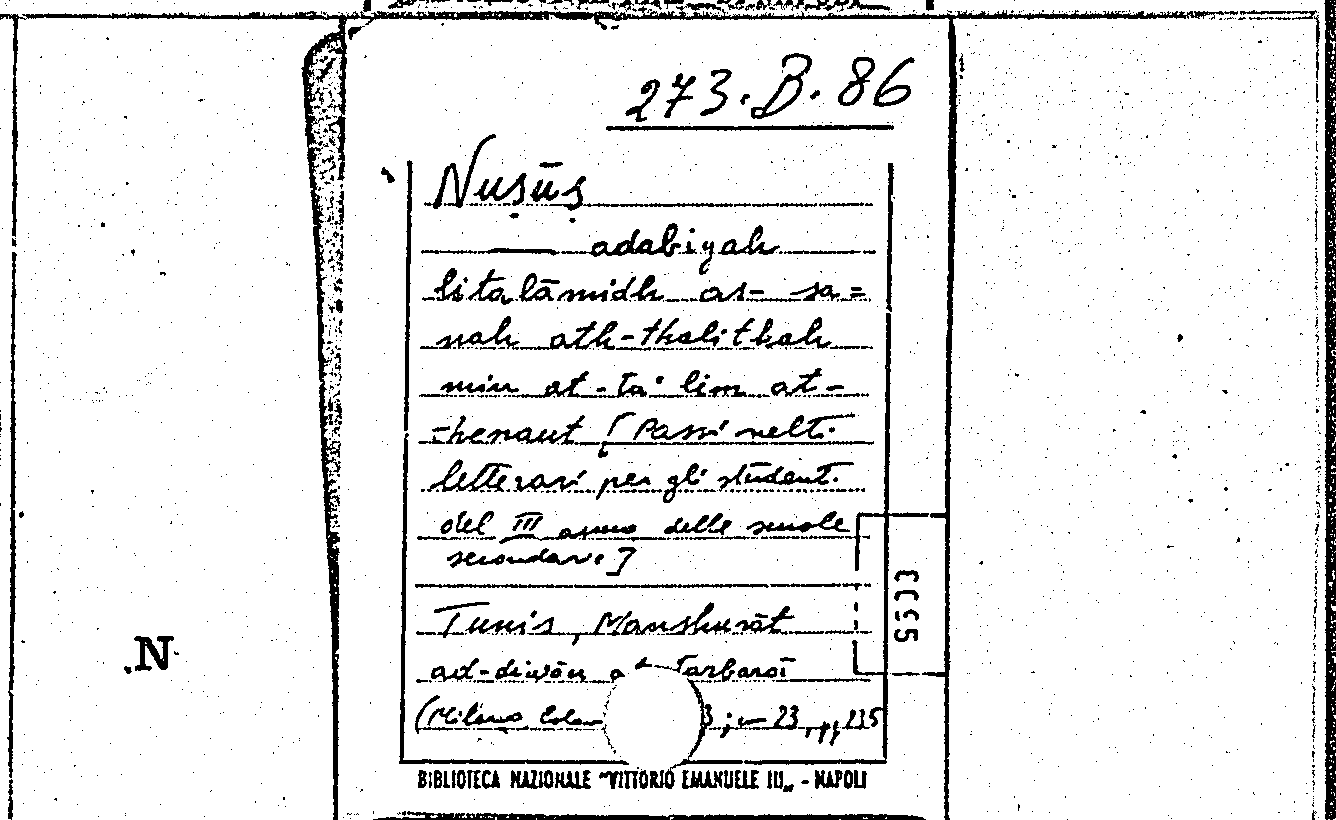 273.B.86
Nuṣūṣ
adabiyah
litalāmidh as- sa=
nah ath-thalithah
min at-ta' lim at-
-henaut [Passi scelti
letterari per gli studenti
del III anno delle scuole
secondarie]
Tunis, Manshurāt
ad-diwān
(Milano 3; in 23, pp 215
5533
.N
BIBLIOTECA NAZIONALE "VITTORIO EMANUELE III" - NAPOLI